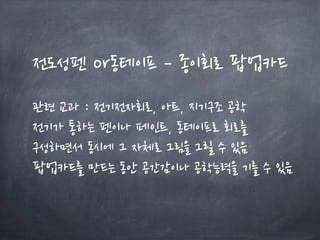 전도성펜 or동테이프 - 종이회로 팝업카드
관련 교과 : 전기전자회로, 아트, 지기구조 공학
전기가 통하는 펜이나 페인트, 동테이프로 회로를
구성하면서 동시에 그 자체로 그림을 그릴 수 있음
팝업카드를 만드는 동안 공간감이나 공학능력을 기를 수 있음